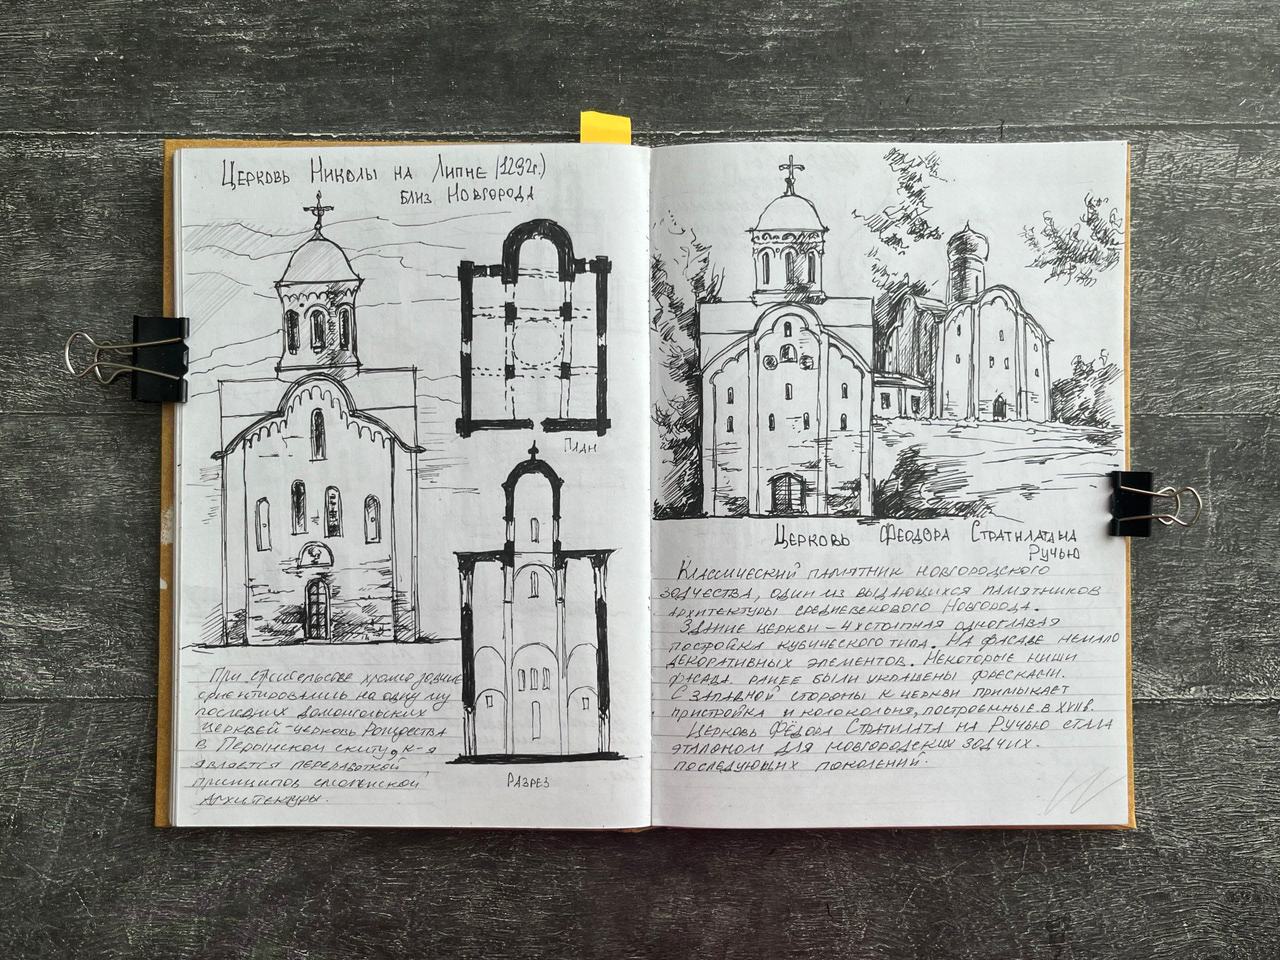 Церковь Николы на Липне (1292г.)
близ Новгорода
План
Разрез
При строительстве храма зодчие
ориентировались на одну из
последних домонгольских
церквей - церковь Рождества
в Перынском скиту, к-я
является переработкой
принципов смоленской
архитектуры.
Церковь Феодора Стратилата на
Ручью
Классический памятник новгородского
зодчества, один из выдающихся памятников
архитектуры средневекового Новгорода.
Здание церкви – 4хстолпная одноглавая
постройка кубического типа. На фасаде немало
декоративных элементов. Некоторые ниши
фасада ранее были украшены фресками.
С западной стороны к церкви примыкает
пристройка и колокольня, построенные в XVII в.
Церковь Фёдора Стратилата на Ручью стала
эталоном для новгородских зодчих
последующих поколений.